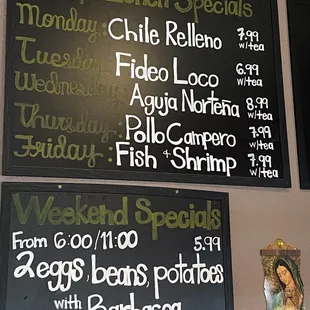 Lunch Specials
Monday: Chile Relleno 7.99 w/tea
Tuesday: Fideo Loco 6.99 w/tea
Wednesday: Aguja Norteña 8.99 w/tea
Thursday: Pollo Campero 7.99 w/tea
Friday: Fish & Shrimp 7.99 w/tea
Weekend Specials
From 6:00/11:00 5.99
2 eggs, beans, potatoes
with Barbacoa